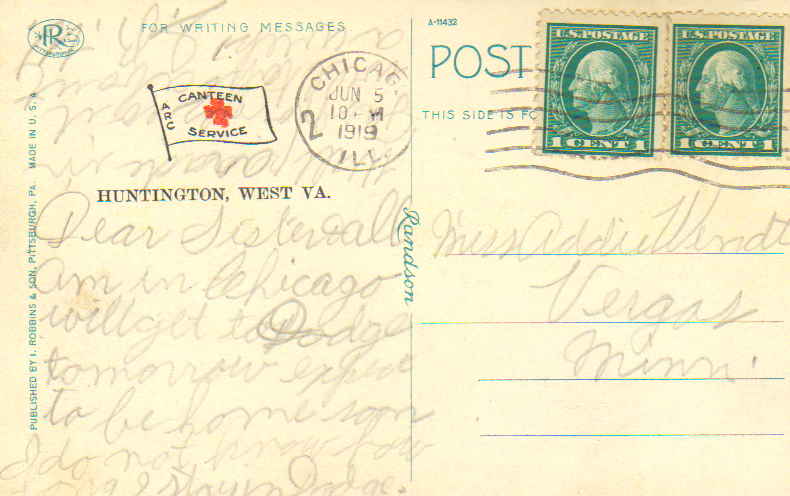 FOR WRITING MESSAGES
A-11432
PR
PITTSBURGH
POST
THIS SIDE IS FO
U.S. POSTAGE
1 CENT 1
U.S. POSTAGE
1 CENT 1
CHICAG
JUN 5
10 M
1919
ILL.
2
ARC
CANTEEN
SERVICE
HUNTINGTON, WEST VA.
MADE IN U. S. A
PUBLISHED BY I. ROBBINS & SON, PITTSBURGH, PA.
Dear Sister & all
am in Chicago
will get to Dodge
tomorrow expect
to be home soon
I do not know how
long I stay in Dodge.
Randson
Miss Addie Wendt
Vergas
Minn.